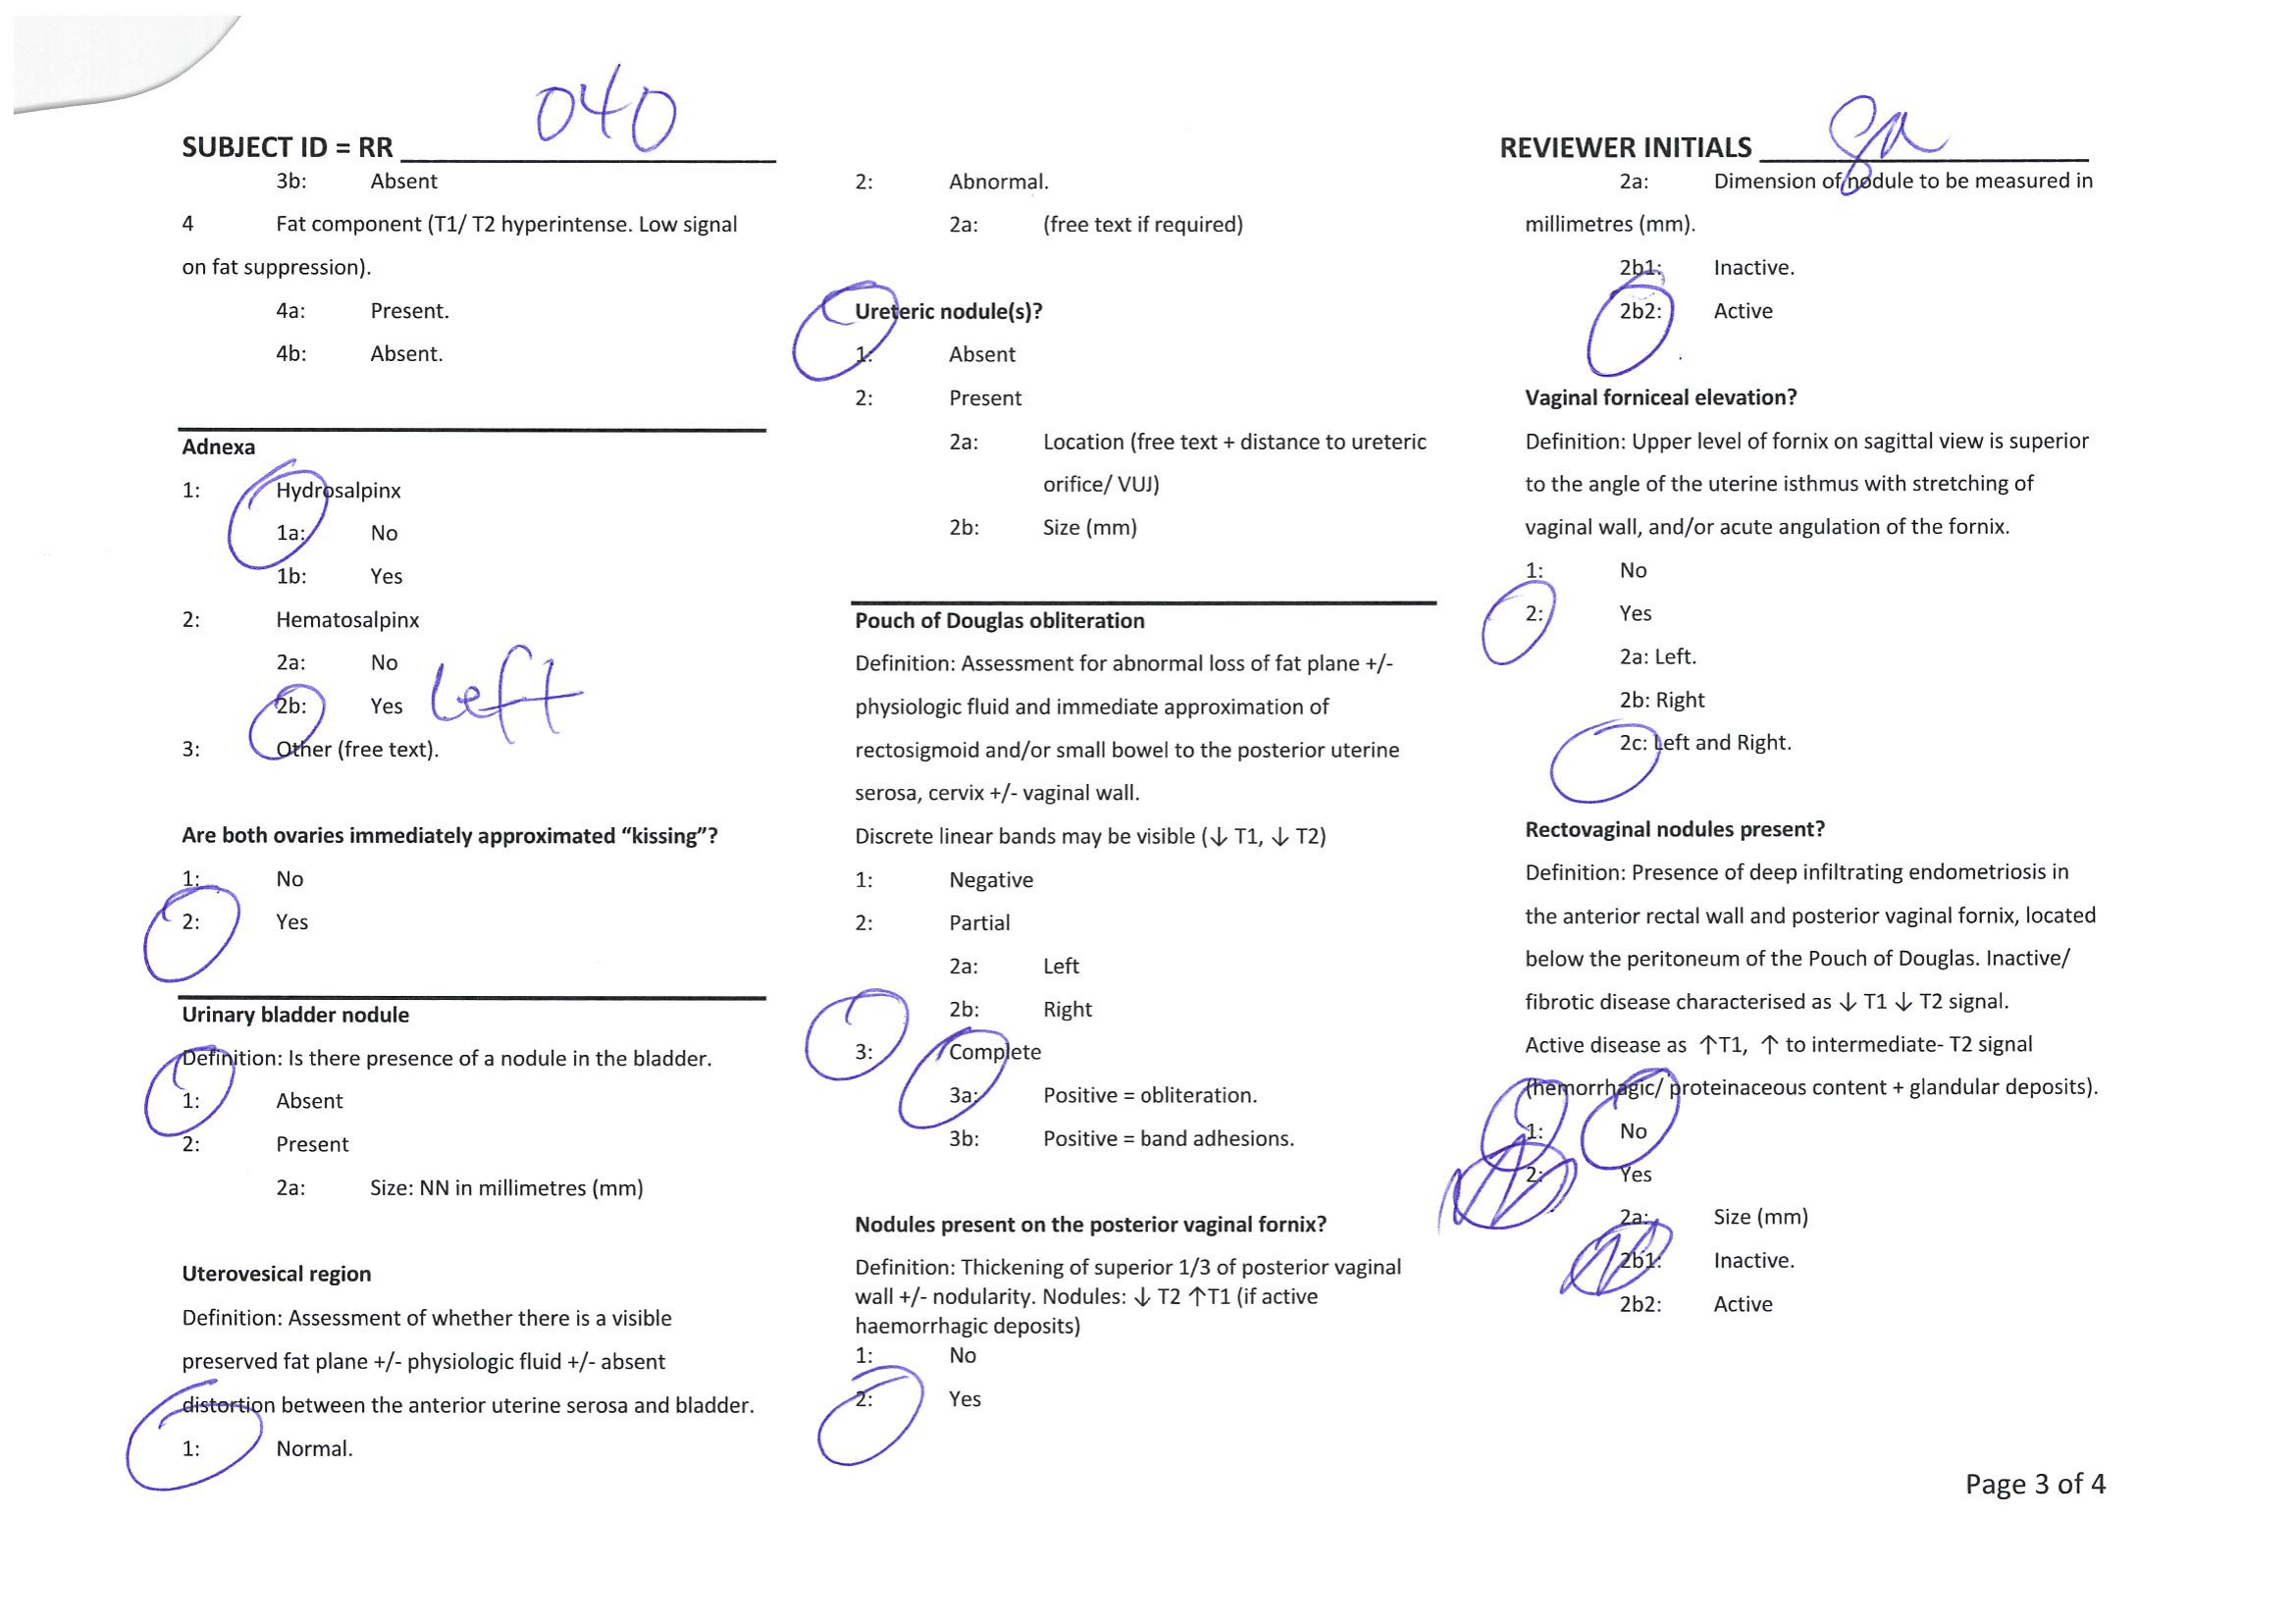 SUBJECT ID = RR 040
3b: Absent
4 Fat component (T1/ T2 hyperintense. Low signal
on fat suppression).
4a: Present.
4b: Absent.
Adnexa
1: Hydrosalpinx
1a: No
1b: Yes
2: Hematosalpinx
2a: No
2b: Yes Left
3: Other (free text).
Are both ovaries immediately approximated “kissing”?
1: No
2: Yes
Urinary bladder nodule
Definition: Is there presence of a nodule in the bladder.
1: Absent
2: Present
2a: Size: NN in millimetres (mm)
Uterovesical region
Definition: Assessment of whether there is a visible
preserved fat plane +/- physiologic fluid +/- absent
distortion between the anterior uterine serosa and bladder.
1: Normal.
2: Abnormal.
2a: (free text if required)
Ureteric nodule(s)?
1: Absent
2: Present
2a: Location (free text + distance to ureteric
orifice/ VUJ)
2b: Size (mm)
Pouch of Douglas obliteration
Definition: Assessment for abnormal loss of fat plane +/-
physiologic fluid and immediate approximation of
rectosigmoid and/or small bowel to the posterior uterine
serosa, cervix +/- vaginal wall.
Discrete linear bands may be visible (↓ T1, ↓ T2)
1: Negative
2: Partial
2a: Left
2b: Right
3: Complete
3a: Positive = obliteration.
3b: Positive = band adhesions.
Nodules present on the posterior vaginal fornix?
Definition: Thickening of superior 1/3 of posterior vaginal
wall +/- nodularity. Nodules: ↓ T2 ↑T1 (if active
haemorrhagic deposits)
1: No
2: Yes
REVIEWER INITIALS
2a: Dimension of nodule to be measured in
millimetres (mm).
2b1: Inactive.
2b2: Active
Vaginal forniceal elevation?
Definition: Upper level of fornix on sagittal view is superior
to the angle of the uterine isthmus with stretching of
vaginal wall, and/or acute angulation of the fornix.
1: No
2: Yes
2a: Left.
2b: Right
2c: Left and Right.
Rectovaginal nodules present?
Definition: Presence of deep infiltrating endometriosis in
the anterior rectal wall and posterior vaginal fornix, located
below the peritoneum of the Pouch of Douglas. Inactive/
fibrotic disease characterised as ↓ T1 ↓ T2 signal.
Active disease as ↑T1, ↑ to intermediate- T2 signal
(hemorrhagic/ proteinaceous content + glandular deposits).
1: No
2: Yes
2a: Size (mm)
2b1: Inactive.
2b2: Active
Page 3 of 4